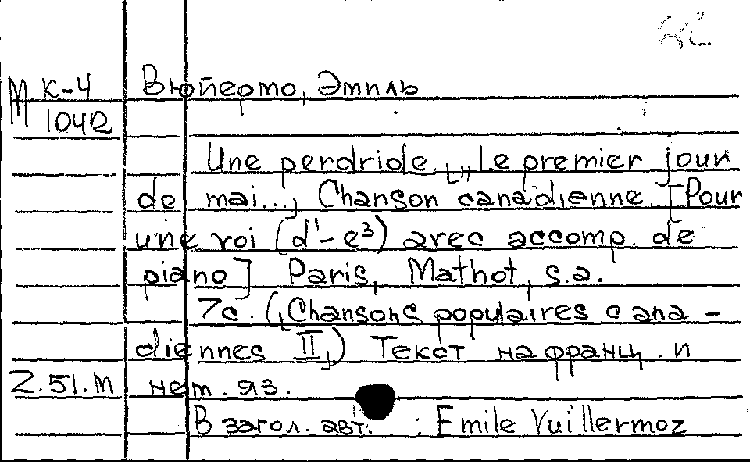 М К-4 Вюйермо, Эмиль
1042
Une perdriole „Le premier jour
de mai..., Chanson canadienne. [Pour
une voi (d¹-e³) avec accomp. de
piano] Paris, Mathot, s.a.
7с. (Chansons populaires cana-
diennes II,) Текст на франц. и
2.51.М нем. яз.
В загол. авт. : Emile Vuillermoz